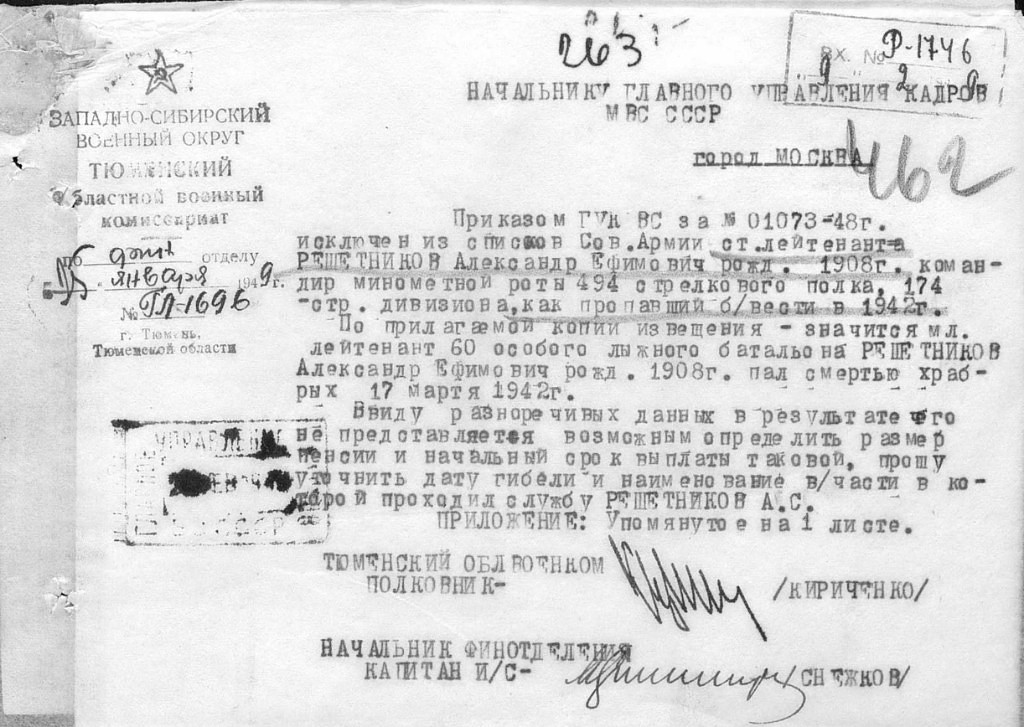 263
ВХ. № Р-1746
9 2 9
НАЧАЛЬНИКУ ГЛАВНОГО УПРАВЛЕНИЯ КАДРОВ
МВС СССР
город МОСКВА
462
ЗАПАДНО-СИБИРСКИЙ
ВОЕННЫЙ ОКРУГ
ТЮМЕНСКИЙ
Областной военный
комиссариат
по фин отделу
января 1949г.
№ ГЛ-1696
г. Тюмень,
Тюменской области
Приказом ГУК ВС за № 01073-48г.
исключен из списков Сов.Армии ст.лейтенанта
РЕШЕТНИКОВ Александр Ефимович рожд. 1908г. коман-
дир минометной роты 494 стрелкового полка, 174
-стр. дивизиона,как пропавший б/вести в 1942г.
По прилагаемой копии извещения - значится мл.
лейтенант 60 особого лыжного батальона РЕШЕТНИКОВ
Александр Ефимович рожд. 1908г. пал смертью храб-
рых 17 марта 1942г.
Ввиду разноречивых данных в результате чего
не представляется возможным определить размер
пенсии и начальный срок выплаты таковой, прошу
уточнить дату гибели и наименование в/части в ко-
торой проходил службу РЕШЕТНИКОВ А.С.
ПРИЛОЖЕНИЕ: Упомянутое на 1 листе.
УПРАВЛЕНИЕ
СССР
ТЮМЕНСКИЙ ОБЛВОЕНКОМ
ПОЛКОВНИК- /КИРИЧЕНКО/
НАЧАЛЬНИК ФИНОТДЕЛЕНИЯ
КАПИТАН И/С- /СНЕЖКОВ/